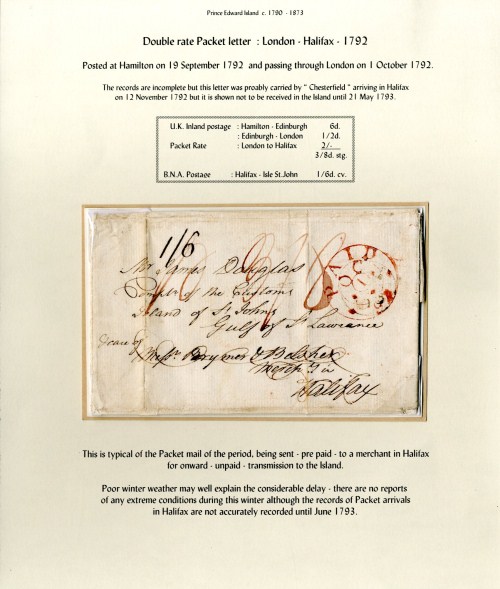 Prince Edward Island c. 1790 - 1873
Double rate Packet letter : London - Halifax - 1792
Posted at Hamilton on 19 September 1792 and passing through London on 1 October 1792.
The records are incomplete but this letter was proably carried by " Chesterfield " arriving in Halifax
on 12 November 1792 but it is shown not to be received in the Island until 21 May 1793.
U.K. Inland postage : Hamilton - Edinburgh 6d.
: Edinburgh - London 1/2d.
Packet Rate : London to Halifax 2/-
3/8d. stg.
B.N.A. Postage : Halifax - Isle St.John 1/6d. cv.
1/6
Mr James Douglas
Compt of the Customs
Island of St Johns
Gulf of St Lawrance
care of
Messrs Brymer & Belcher
Halifax
PAID
This is typical of the Packet mail of the period, being sent - pre paid - to a merchant in Halifax
for onward - unpaid - transmission to the Island.
Poor winter weather may well explain the considerable delay - there are no reports
of any extreme conditions during this winter although the records of Packet arrivals
in Halifax are not accurately recorded until June 1793.